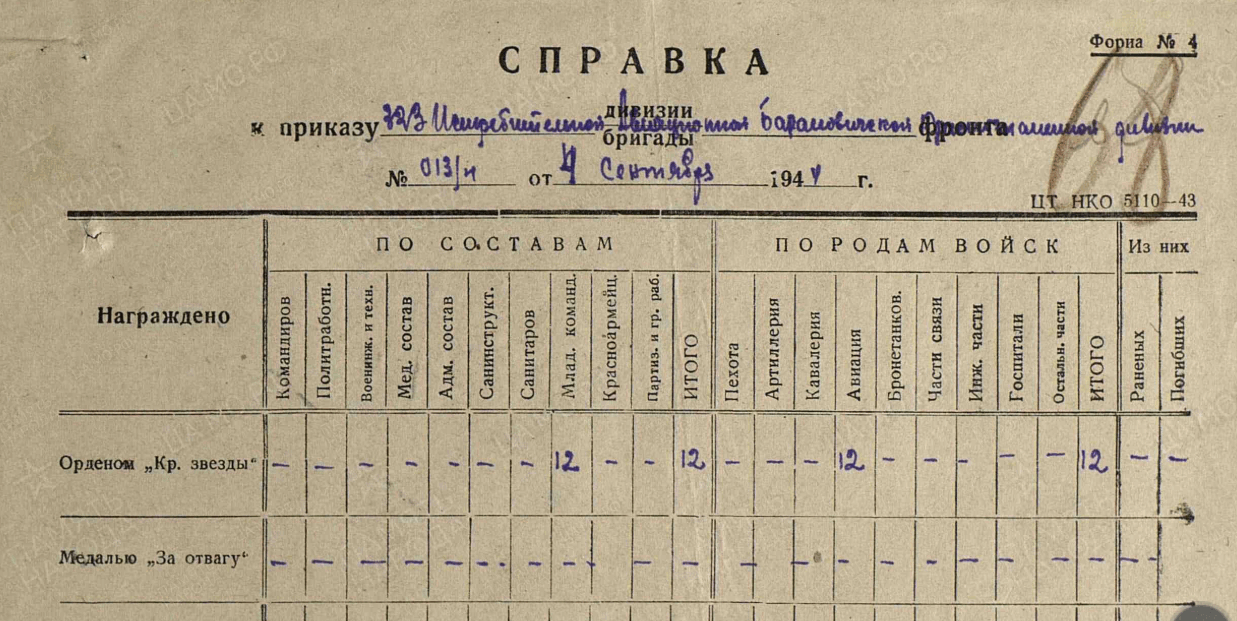 Форма № 4
СПРАВКА
68
к приказу 323 Истребительной Авиационной Барановичской Краснознаменной дивизии
дивизии
бригады
фронта
№ 013/н от 4 Сентября 1944 г.
ЦТ НКО 5110—43
Награждено
ПО СОСТАВАМ
ПО РОДАМ ВОЙСК
Из них
Командиров
Политработн.
Военинж. и техн.
Мед. состав
Адм. состав
Санинструкт.
Санитаров
Млад. команд.
Красноармейц.
Партиз. и гр. раб.
ИТОГО
Пехота
Артиллерия
Кавалерия
Авиация
Бронетанков.
Части связи
Инж. части
Госпитали
Остальн. части
ИТОГО
Раненых
Погибших
Орденом „Кр. звезды“ – – – – – – – 12 – – 12 – – – 12 – – – – – 12 – –
Медалью „За отвагу“ – – – – – – – – – – – – – – – – – – – – – –